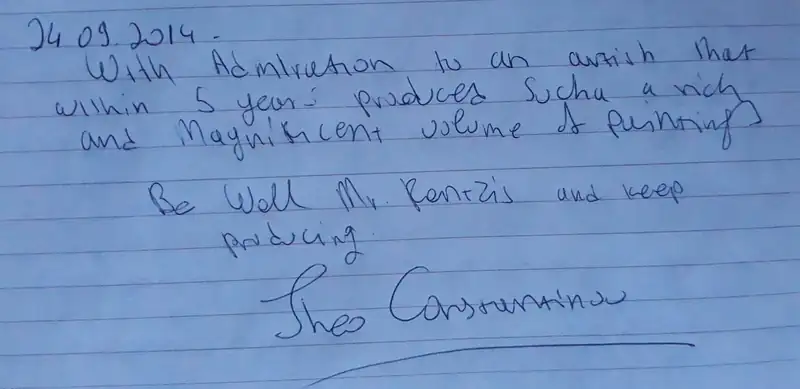 24.09.2014.
With Admiration to an artish that
within 5 years produces Sucha a rich
and Magnificent volume of paintings
Be Well Mr. Rentzis and keep
producing.
Theo Constantinou